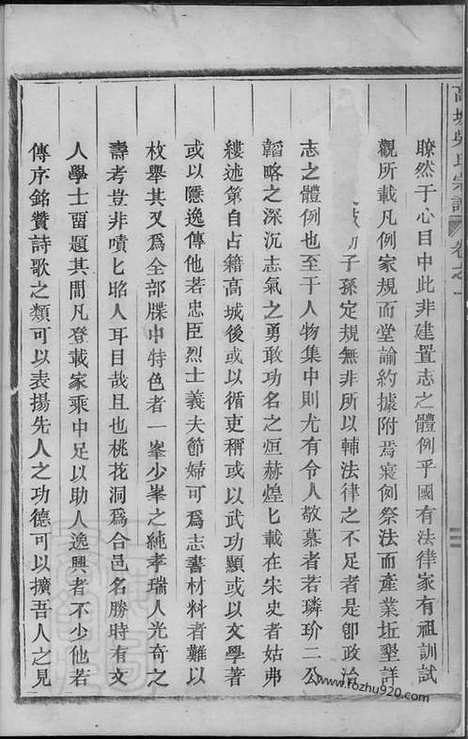 高城吳氏宗譜 卷之一
瞭然于心目中此非建置志之體例乎國有法律家有祖訓試
觀所載凡例家規而堂諭約據附焉寢例祭法而產業坵墾詳
子孫定規無非所以輔法律之不足者是卽政治
志之體例也至于人物集中則尤有令人敬慕者若璘玠二公
韜略之深沉志氣之勇敢功名之烜赫煌匕載在宋史者姑弗
縷述第自占籍高城後或以循吏稱或以武功顯或以文學著
或以隱逸傳他若忠臣烈士義夫節婦可爲志書材料者難以
枚舉其又爲全部牒中特色者一峯少峯之純孝瑞人光奇之
壽考豈非嘖匕昭人耳目哉且也桃花洞爲合邑名勝時有文
人學士畱題其間凡登載家乘中足以助人逸興者不少他若
傳序銘贊詩歌之類可以表揚先人之功德可以擴吾人之見
www.fozhu920.com